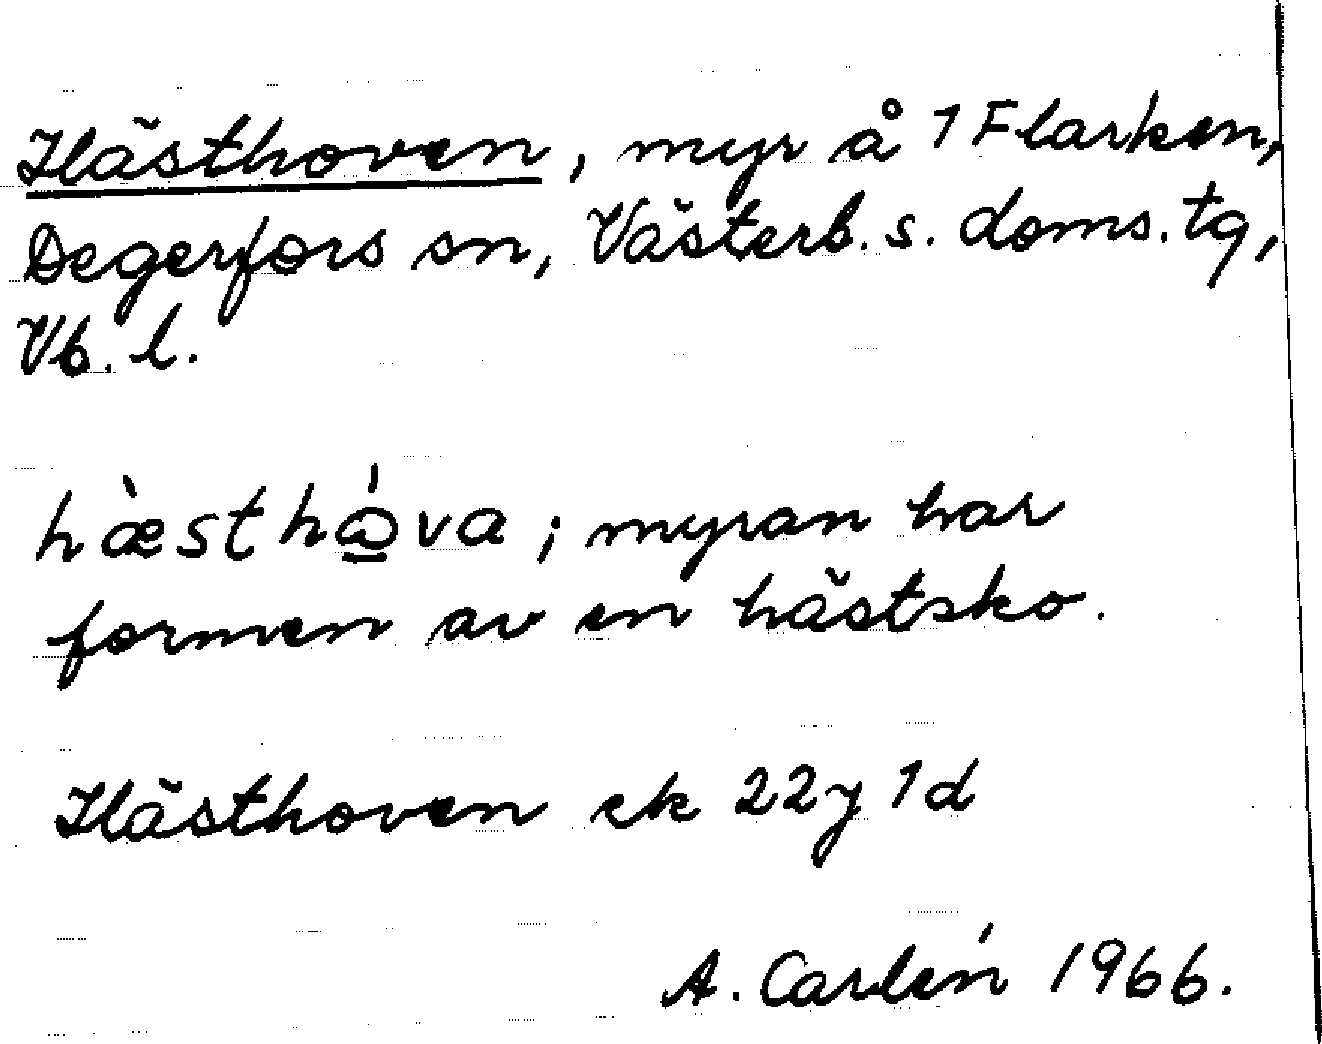 Hästhoven, myr å 1 Flarken,
Degerfors sn, Västerb. s. doms. tg,
Vb. l.
hæ̀sthɷ́va; myran har
formen av en hästsko.
Hästhoven ek 22y 1d
A. Carlén 1966.